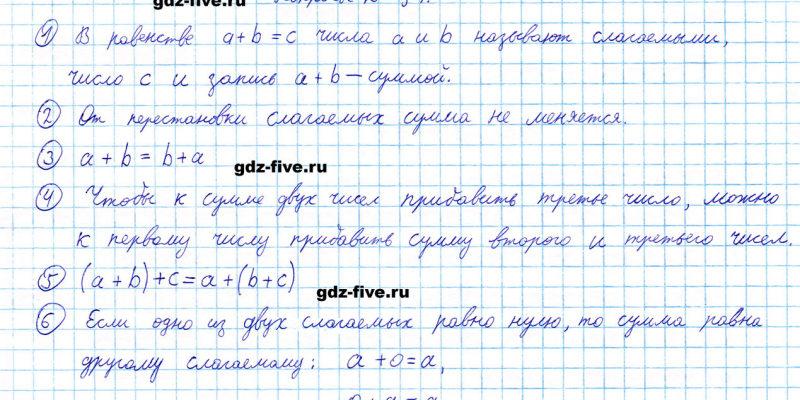 gdz-five.ru
1 В равенстве a+b=c числа a и b называют слагаемыми,
число c и запись a+b — суммой.
2 От перестановки слагаемых сумма не меняется.
3 a+b=b+a
gdz-five.ru
4 Чтобы к сумме двух чисел прибавить третье число, можно
к первому числу прибавить сумму второго и третьего чисел.
5 (a+b)+c=a+(b+c)
gdz-five.ru
6 Если одно из двух слагаемых равно нулю, то сумма равна
другому слагаемому: a+0=a,